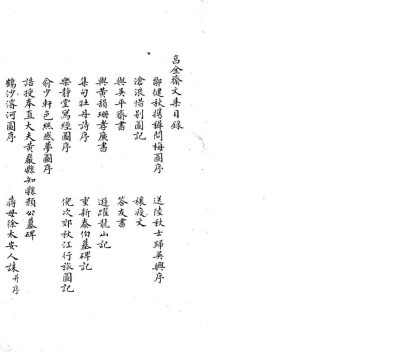 古金齋文集目錄
鄭健秋攜罇問梅圖序
送陸秋士歸吳興序
滄浪惜別圖記
禳疫文
與吳平齋書
答友書
與黃楨珊孝廉書
遊躍龍山記
集句牡丹詩序
重新泰伯墓碑記
樂靜堂寫經圖序
倪次郊秋江行旅圖記
俞少軒色絲感夢圖序
誥授奉直大夫黃巖縣知縣顏公墓碑
鶴沙濬河圖序
蔣母徐太安人誄并序